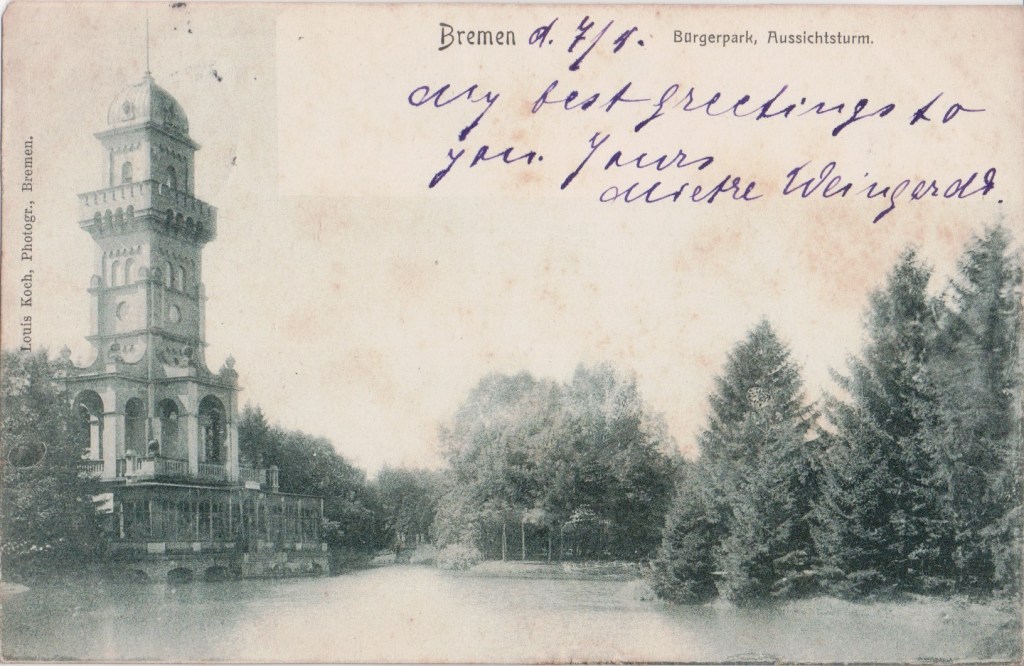 Bremen d. 7/8. Bürgerpark, Aussichtsturm.
My best Greetings to
you. Yours
Mietze Weingardt.
Louis Koch, Photogr., Bremen.